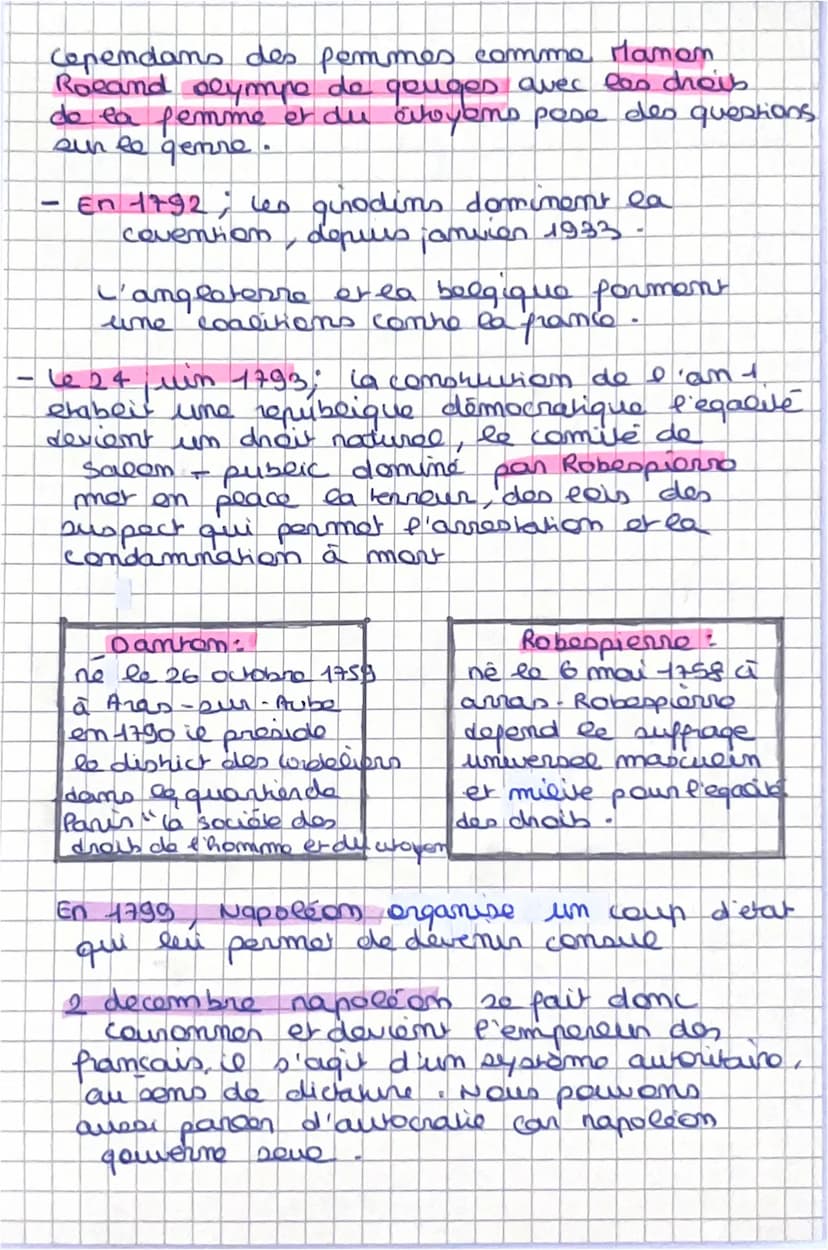 cependans des femmes comme Manon
Roland olympe de gouges avec les droits
de la femme et du citoyens pose des questions
sur le genre.
- En 1792 ; les girodins dominent la
covention, depuis janvier 1933.
L'angleterre et la belgique forment
une coalitions contre la france.
- Le 24 juin 1793; la constitution de l'an 1
etablit une republique démocratique l'egalité
devient un droit naturel, le comité de
salem - public dominé par Robespierre
met en place la terreur, des lois des
suspect qui permet l'arrestation et la
condamnation à mort
Danton:
né le 26 octobre 1759
à Aras-sur-Aube
en 1790 il preside
le district des cordeliers
dans le quartier de
Paris "la société des
droits de l'homme et du citoyen
Robespierre:
né le 6 mai 1758 à
arras. Robespierre
defend le suffrage
universel masculin
et milite pour l'egalité
des droits.
En 1799, Napoléon organise un coup d'etat
qui lui permet de devenir consul
2 decembre napoléon se fait donc
couronner et devient l'empereur des
français, il s'agit d'un système autoritaire,
au sens de dictature. Nous pouvons
aussi parler d'autocratie car napoléon
gouverne seul.